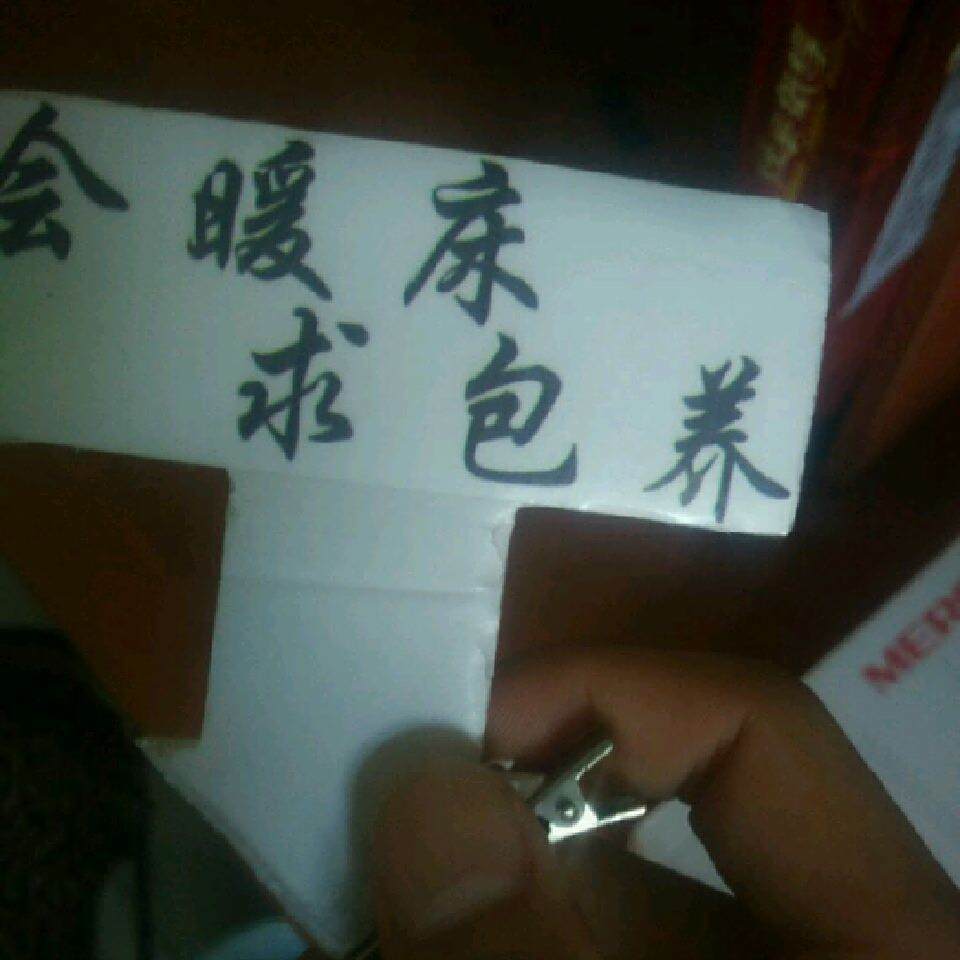 会暖床
求包养
MER